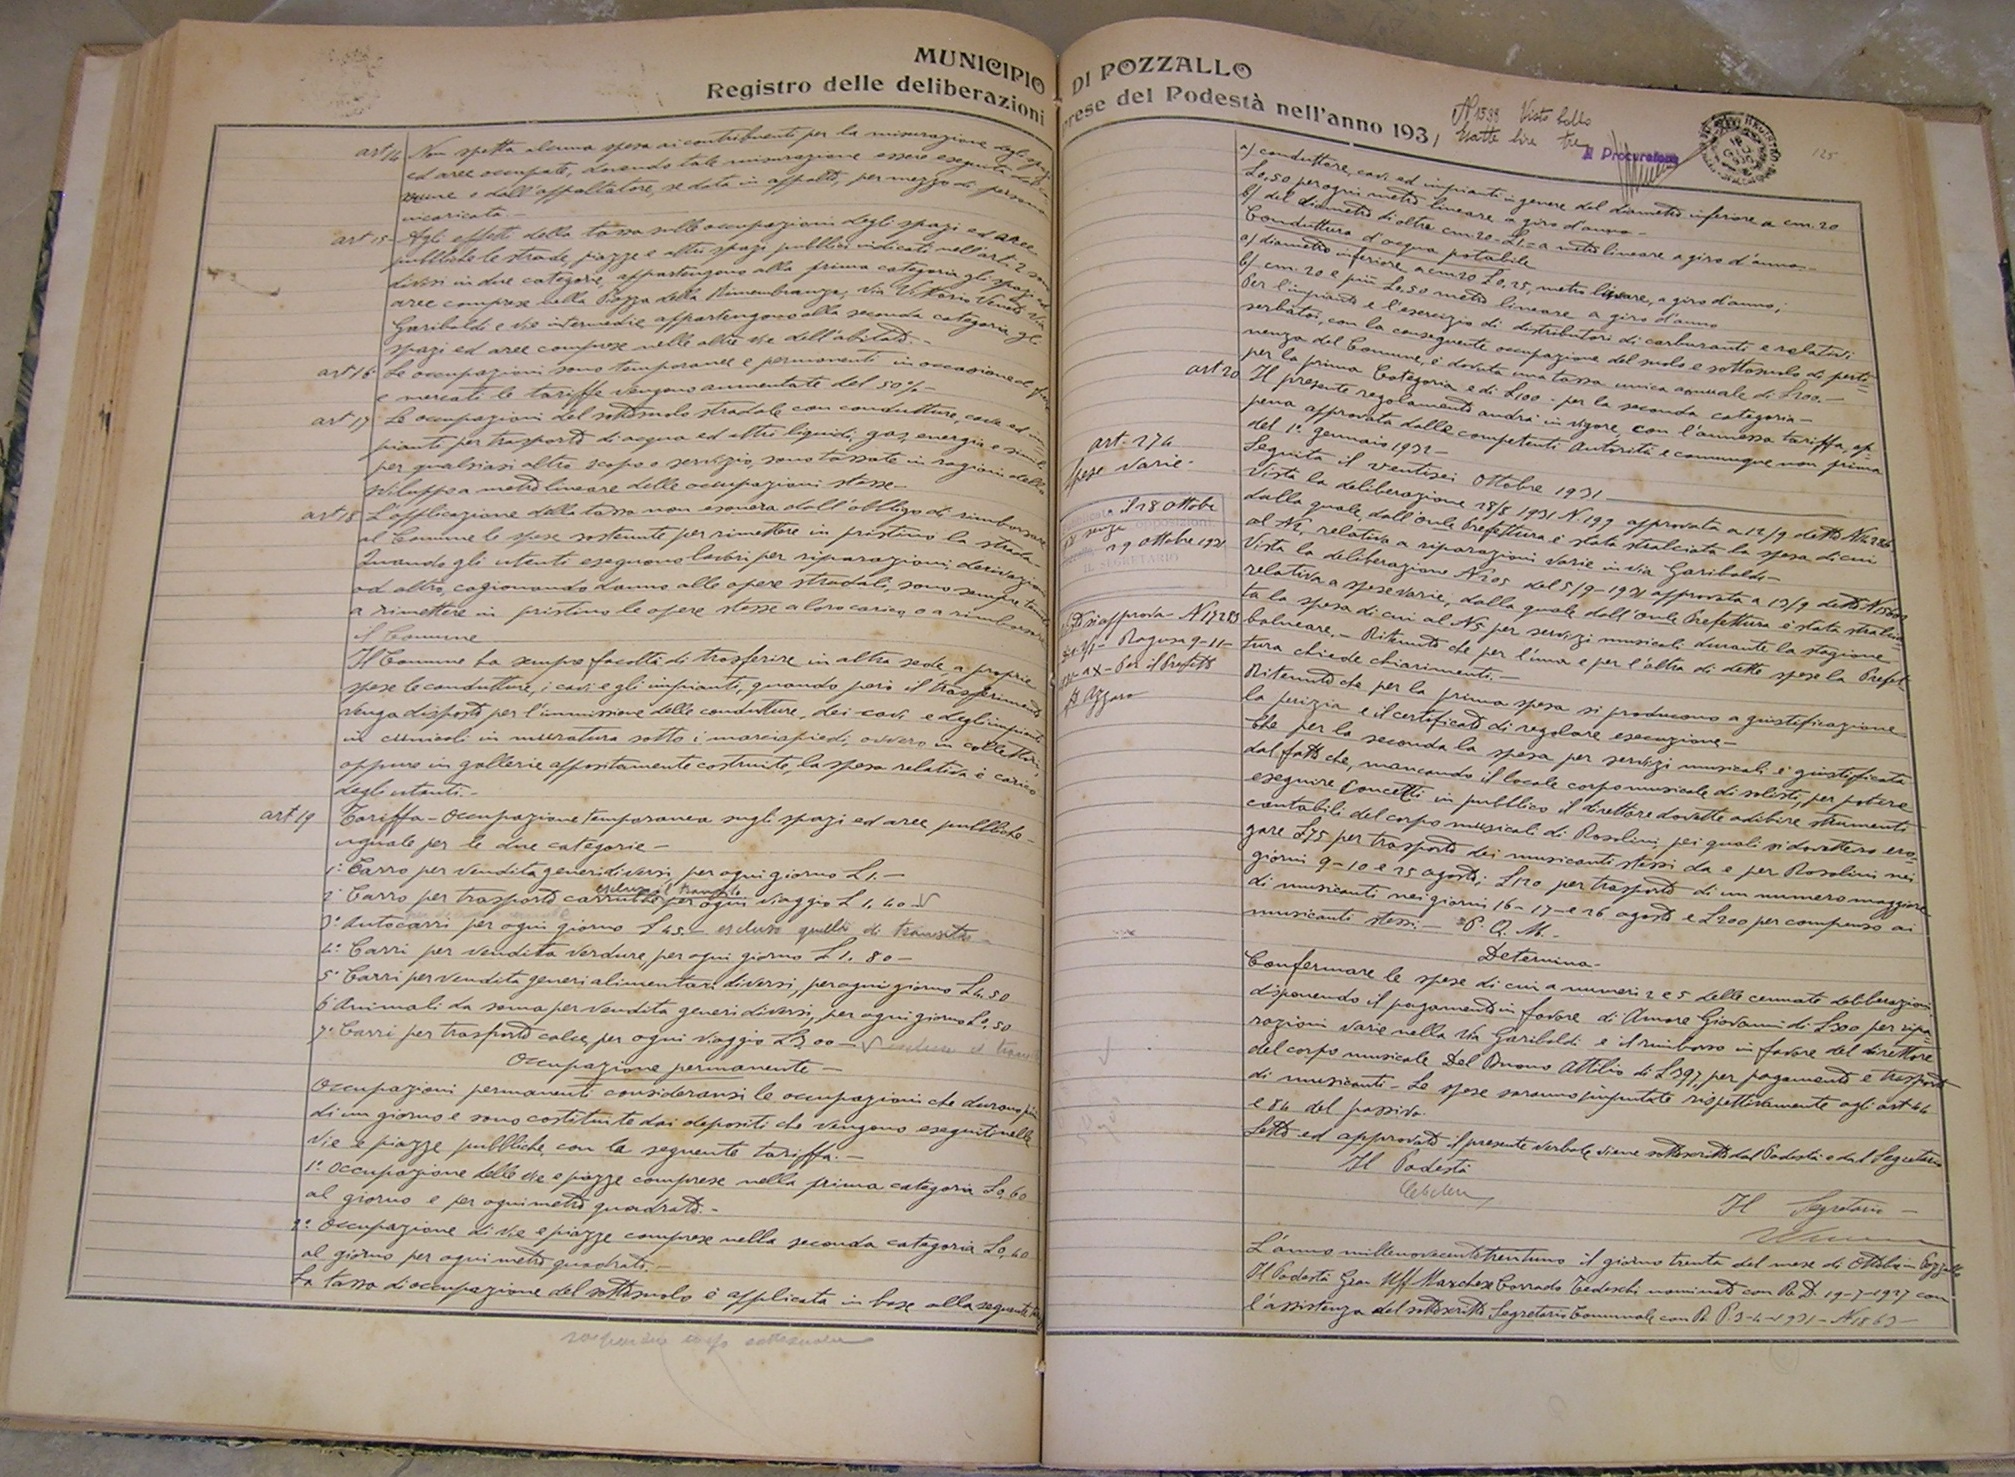 MUNICIPIO DI POZZALLO
Registro delle deliberazioni prese del Podestà nell'anno 1931
art 14 Non spetta alcuna spesa ai contribuenti per la misurazione degli spazi
ed aree occupate, dovendo tale misurazione essere eseguita dal
mune o dall'appaltatore, se data in appalto, per mezzo di persona
incaricata -
art 15 - Agli effetti della tassa sulle occupazioni degli spazi ed aree
pubbliche le strade, piazze e altri spazi pubblici indicati nell'art. 2 sono
divisi in due categorie, appartengono alla prima categoria gli spazi ed
aree comprese nella Piazza della Rimembranza, Via Vittorio Veneto, Via
Garibaldi e vie intermedie, appartengono alla seconda categoria gli
spazi ed aree comprese nelle altre vie dell'abitato. -
art 16 Le occupazioni sono temporanee e permanenti in occasione di fiere
e mercati le tariffe vengono aumentate del 50% -
art 17 Le occupazioni del sottosuolo stradale con condutture, cavi ed im=
pianti per trasporto di acqua ed altri liquidi, gas, energia e simili
per qualsiasi altro scopo o servizio, sono tassate in ragione dello
sviluppo a metro lineare delle occupazioni stesse -
art 18 L'applicazione della tassa non esonera dall'obbligo di rimborsare
al Comune le spese sostenute per rimettere in pristino la strada -
Quando gli utenti eseguono lavori per riparazioni, derivazioni
od altro, cagionando danno alle opere stradali, sono sempre tenuti
a rimettere in pristino le opere stesse a loro carico, o a rimborsare
il Comune
Il Comune ha sempre facoltà di trasferire in altra sede, a proprie
spese le condutture, i cavi e gli impianti, quando però il trasferimento
venga disposto per l'immissione delle condutture, dei cavi e degli impianti
in cunicoli in muratura sotto i marciapiedi, ovvero in collettori,
oppure in gallerie appositamente costruite, la spesa relativa è carico
degli utenti. -
art 19 Tariffa - Occupazione temporanea sugli spazi ed aree pubbliche -
uguale per le due categorie -
1° Carro per vendita generi diversi, per ogni giorno L 1. -
escluso il transito
2° Carro per trasporto carrubbe per ogni viaggio L 1. 40
3° Autocarri per ogni giorno L 45 - esclusi quelli di transito -
4° Carri per vendita verdure, per ogni giorno L 1. 80 -
5° Carri per vendita generi alimentari diversi, per ogni giorno L 4. 50
6° Animali da soma per vendita generi diversi, per ogni giorno L 0, 50
7° Carri per trasporto calce, per ogni viaggio L 3, 00 - escluso il transito
Occupazione permanente -
Occupazioni permanenti consideransi le occupazioni che durano più
di un giorno e sono costituite dai depositi che vengono eseguiti nelle
vie e piazze pubbliche con la seguente tariffa. -
1° Occupazione delle vie e piazze comprese nella prima categoria L 0, 60
al giorno e per ogni metro quadrato. -
2° Occupazione di vie e piazze comprese nella seconda categoria L 0, 40
al giorno per ogni metro quadrato. -
La tassa di occupazione del sottosuolo è applicata in base alla seguente
N 1538 Visto bollo
Esatte lire tre
Il Procuratore
125
a) condutture, cavi ed impianti in genere del diametro inferiore a cm. 20
L 0, 50 per ogni metro lineare a giro d'anno -
b) del diametro di oltre cm. 20 - L 1 = a metro lineare a giro d'anno -
Conduttura d'acqua potabile
a) diametro inferiore a cm 20 L 0, 25, metro lineare, a giro d'anno;
b) cm. 20 e più L 0, 50 metro lineare a giro d'anno
Per l'impianto e l'esercizio di distributori di carburanti e relativi
serbatoi, con la conseguente occupazione del suolo e sottosuolo di perti=
nenza del Comune, è dovuta una tassa unica annuale di L 200. -
per la prima Categoria e di L 100 - per la seconda categoria -
art 20 Il presente regolamento andrà in vigore, con l'annessa tariffa, ap=
pena approvata dalle competenti Autorità e comunque non prima
del 1° gennaio 1932 -
Seguita il ventisei Ottobre 1931
art. 274
Spese varie.
Vista la deliberazione 28/8 1931 N. 199 approvata a 12/9 detto
dalla quale, dall'On/le Prefettura è stata stralciata la spesa di cui
al N 2, relativa a riparazioni varie in via Garibaldi -
Vista la deliberazione N 205 del 5/9 - 1931 approvata a 13/9 detto
relativa a spese varie, dalla quale dall'On/le Prefettura è stata stralcia
ta la spesa di cui al N 5 per servizi musicali durante la stagione
balneare. - Ritenuto che per l'una e per l'altra di dette spese la Prefet
tura chiede chiarimenti. -
28 Ottobre
29 Ottobre 1931
IL SEGRETARIO
si approva - N 17283
Ragusa 9 - 11 -
Per il Prefetto
Ritenuto che per la prima spesa si producono a giustificazione
la perizia e il certificato di regolare esecuzione -
Che per la seconda la spesa per servizi musicali è giustificata
dal fatto che, mancando il locale corpo musicale di solisti, per potere
eseguire concerti in pubblico il direttore dovette adibire strumenti
contabili del corpo musicali di Rosolini, pei quali si dovettero ero=
gare L 75 per trasporto dei musicanti stessi da e per Rosolini nei
giorni 9 - 10 e 25 agosto; L 120 per trasporto di un numero maggiore
di musicanti nei giorni 16 - 17 - e 26 agosto e L 200 per compenso ai
musicanti stessi. - P. Q. M. -
Determina -
Confermare le spese di cui a numeri 2 e 5 delle cennate deliberazioni
disponendo il pagamento in favore di Amore Giovanni di L 300 per ripa=
razioni varie nella Via Garibaldi e il rimborso in favore del direttore
del corpo musicale Del Buono Attilio di L 397, per pagamento e trasporto
di musicanti - Le spese saranno imputate rispettivamente agli art 44
e 84 del passivo.
Letto ed approvato il presente verbale viene sottoscritto dal Podestà e dal Segretario
Il Podestà
Il Segretario -
L'anno millenovecentotrentuno il giorno trenta del mese di Ottobre in Pozzallo
Il Podestà Gran Uff Marchese Corrado Tedeschi nominato con R. D. 19-7-1927 con
l'assistenza del sottoscritto Segretario Comunale con D. P. 3-4-1931 - N 1863 -